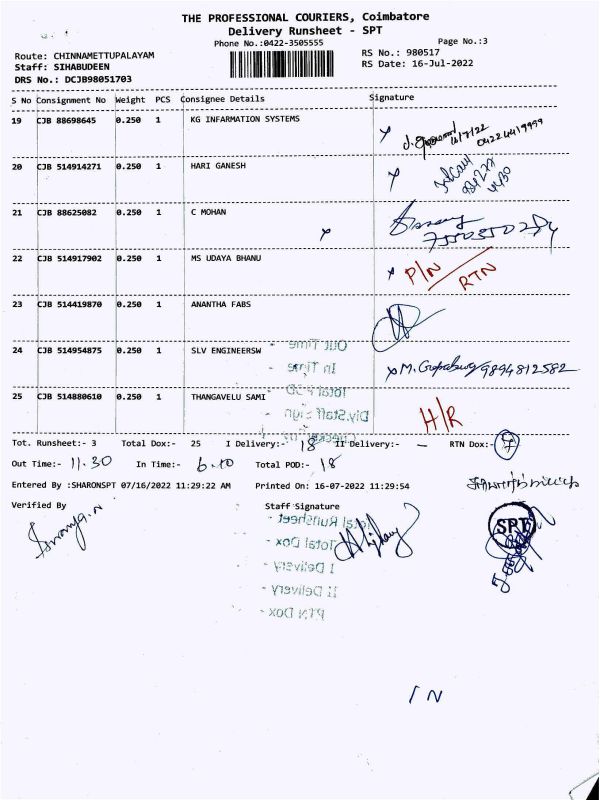 THE PROFESSIONAL COURIERS, Coimbatore
Delivery Runsheet - SPT
Phone No.:0422-3505555 Page No.:3
Route: CHINNAMETTUPALAYAM RS No.: 980517
Staff: SIHABUDEEN RS Date: 16-Jul-2022
DRS No.: DCJB98051703
S No Consignment No Weight PCS Consignee Details Signature
19 CJB 88698645 0.250 1 KG INFARMATION SYSTEMS
16/7/22 04224419999
20 CJB 514914271 0.250 1 HARI GANESH
21 CJB 88625082 0.250 1 C MOHAN
22 CJB 514917902 0.250 1 MS UDAYA BHANU P/N RTN
23 CJB 514419870 0.250 1 ANANTHA FABS
Out Time -
24 CJB 514954875 0.250 1 SLV ENGINEERSW 9894812582
In Time -
Total POD -
25 CJB 514880610 0.250 1 THANGAVELU SAMI H/R
Dly.Staff Sign -
Tot. Runsheet:- 3 Total Dox:- 25 I Delivery:- 18 II Delivery:- — RTN Dox:- 7
Out Time:- 11.30 In Time:- 6.10 Total POD:- 18
Entered By :SHARONSPT 07/16/2022 11:29:22 AM Printed On: 16-07-2022 11:29:54
Verified By Staff Signature
SPT
Total Runsheet -
Total Dox -
I Delivery -
II Delivery -
RTN Dox -
IN